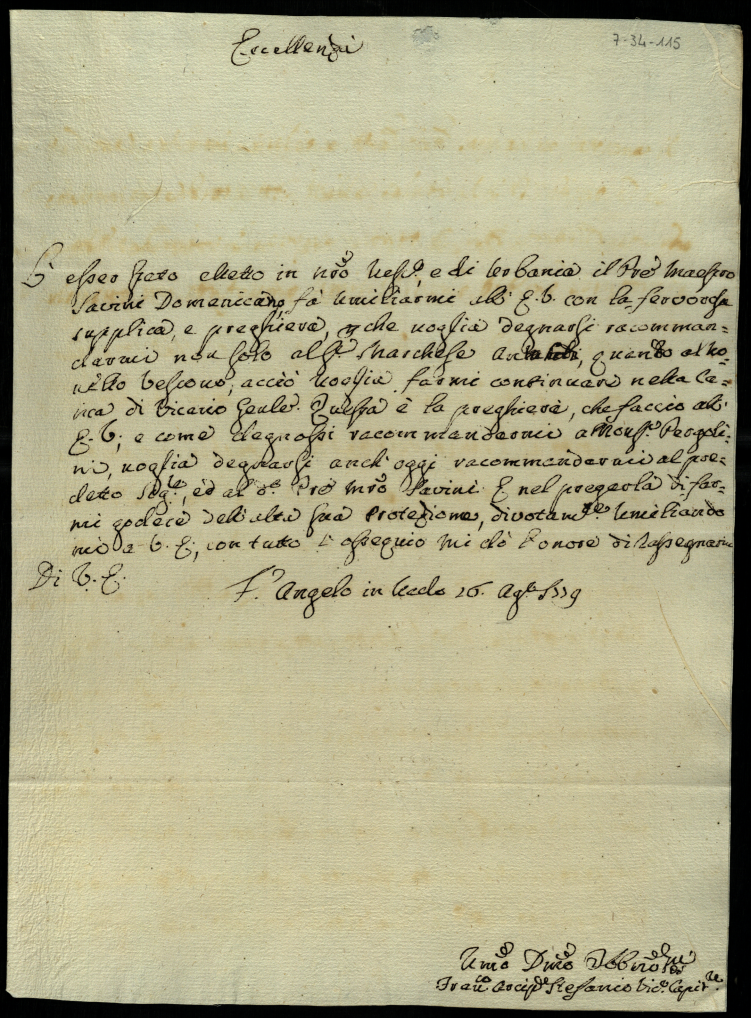 7-34-115
Eccellenza
L'esser stato eletto in nrõ Vescº. e di Urbania il Prẽ Maestro
Savini Domenicano fà umiliarmi all'E.V. con la fervorosa
supplica, e preghiera, che voglia degnarsi racomman=
darmi non solo al Sr. Marchese Antaldi, quanto al no=
vello Vescovo, acciò voglia farmi continuare nella Ca=
rica di Vicario Genle. Questa è la preghiera, che faccio all'
E.V.; e come degnossi racommandarmi a Monsr. Pergoli=
ni, voglia degnarsi anch'oggi racommandarmi al pre=
detto Sigre., ed al Prẽ Mrõ Savini. E nel pregarla di far=
mi godere dell'alta sua Protezione, divotamte. umiliando
mi a V.E., con tutto l'ossequio mi dò l'onore di rassegnarmi
Di V.E.
S. Angelo in Vado 26. Agto. 1779
Umõ Dmõ Obbmõ Sre
Franco Arcipe Stefanio Vico. Capitre.